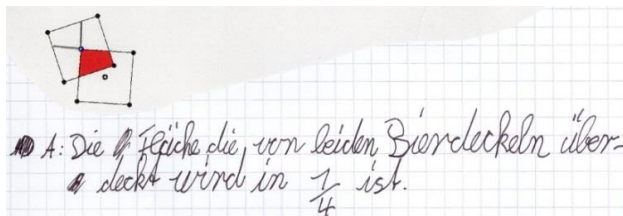 A: Die Fläche die von beiden Bierdeckeln über-
deckt wird in 1/4 ist.